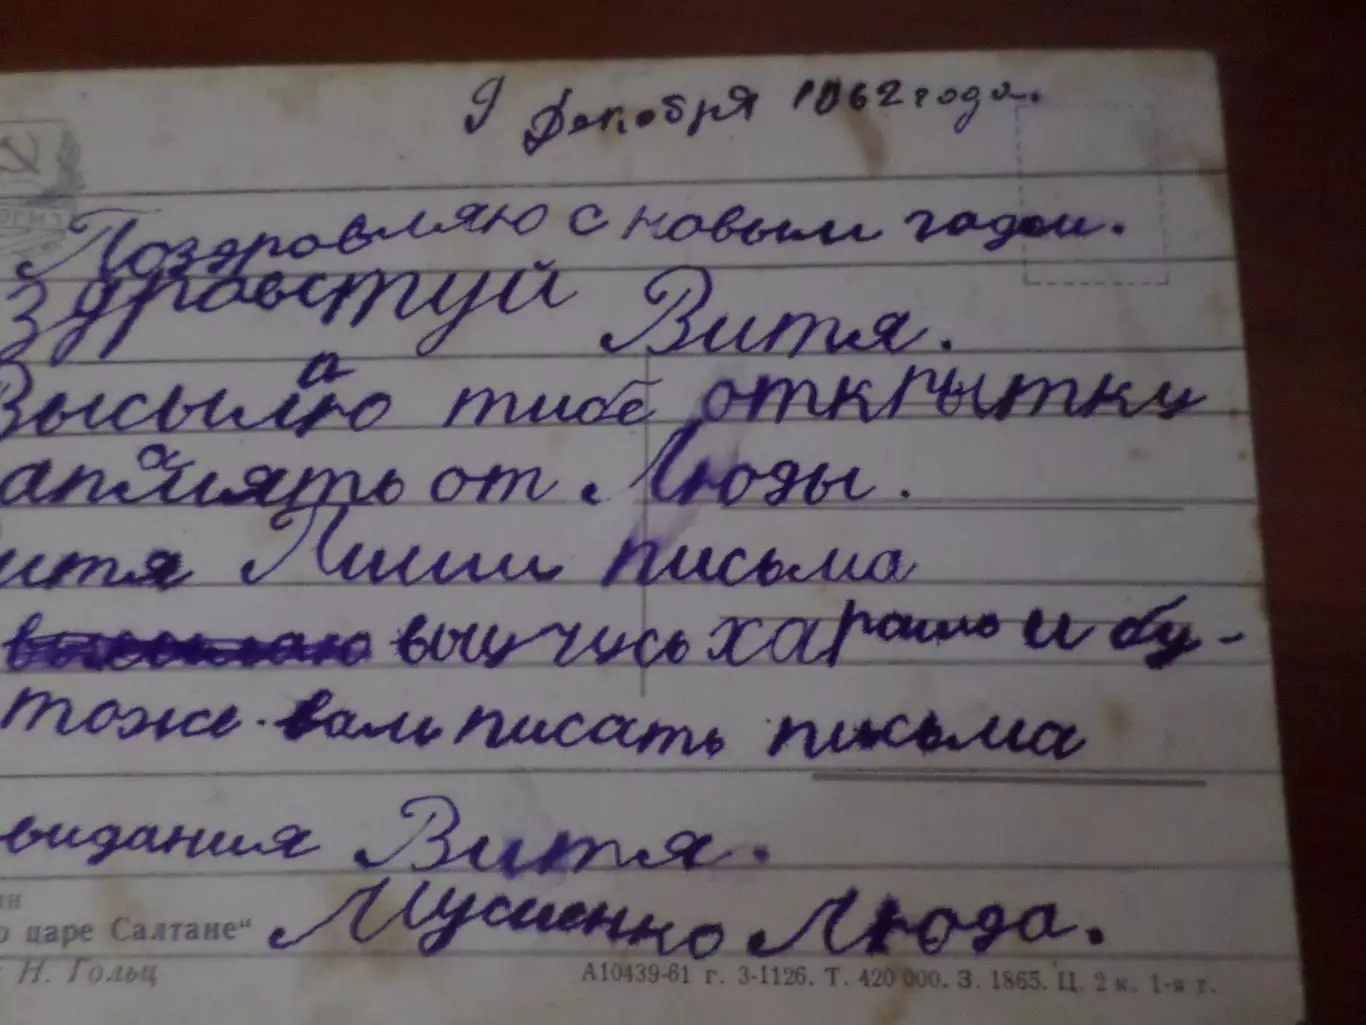 9 Декабря 1962 года.
ОГИЗ
Поздровляю с новым годом.
Здравстуй Витя.
Высылаю тибе открытку
апамять от Люды.
итя Пиши письма
выучись харашо и бу-
тоже вам писать письма
видания Витя.
ин
о царе Салтане"
Люда.
Н. Гольц
А10439-61 г. З-1126. Т. 420 000. З. 1865. Ц. 2 к. 1-я т.